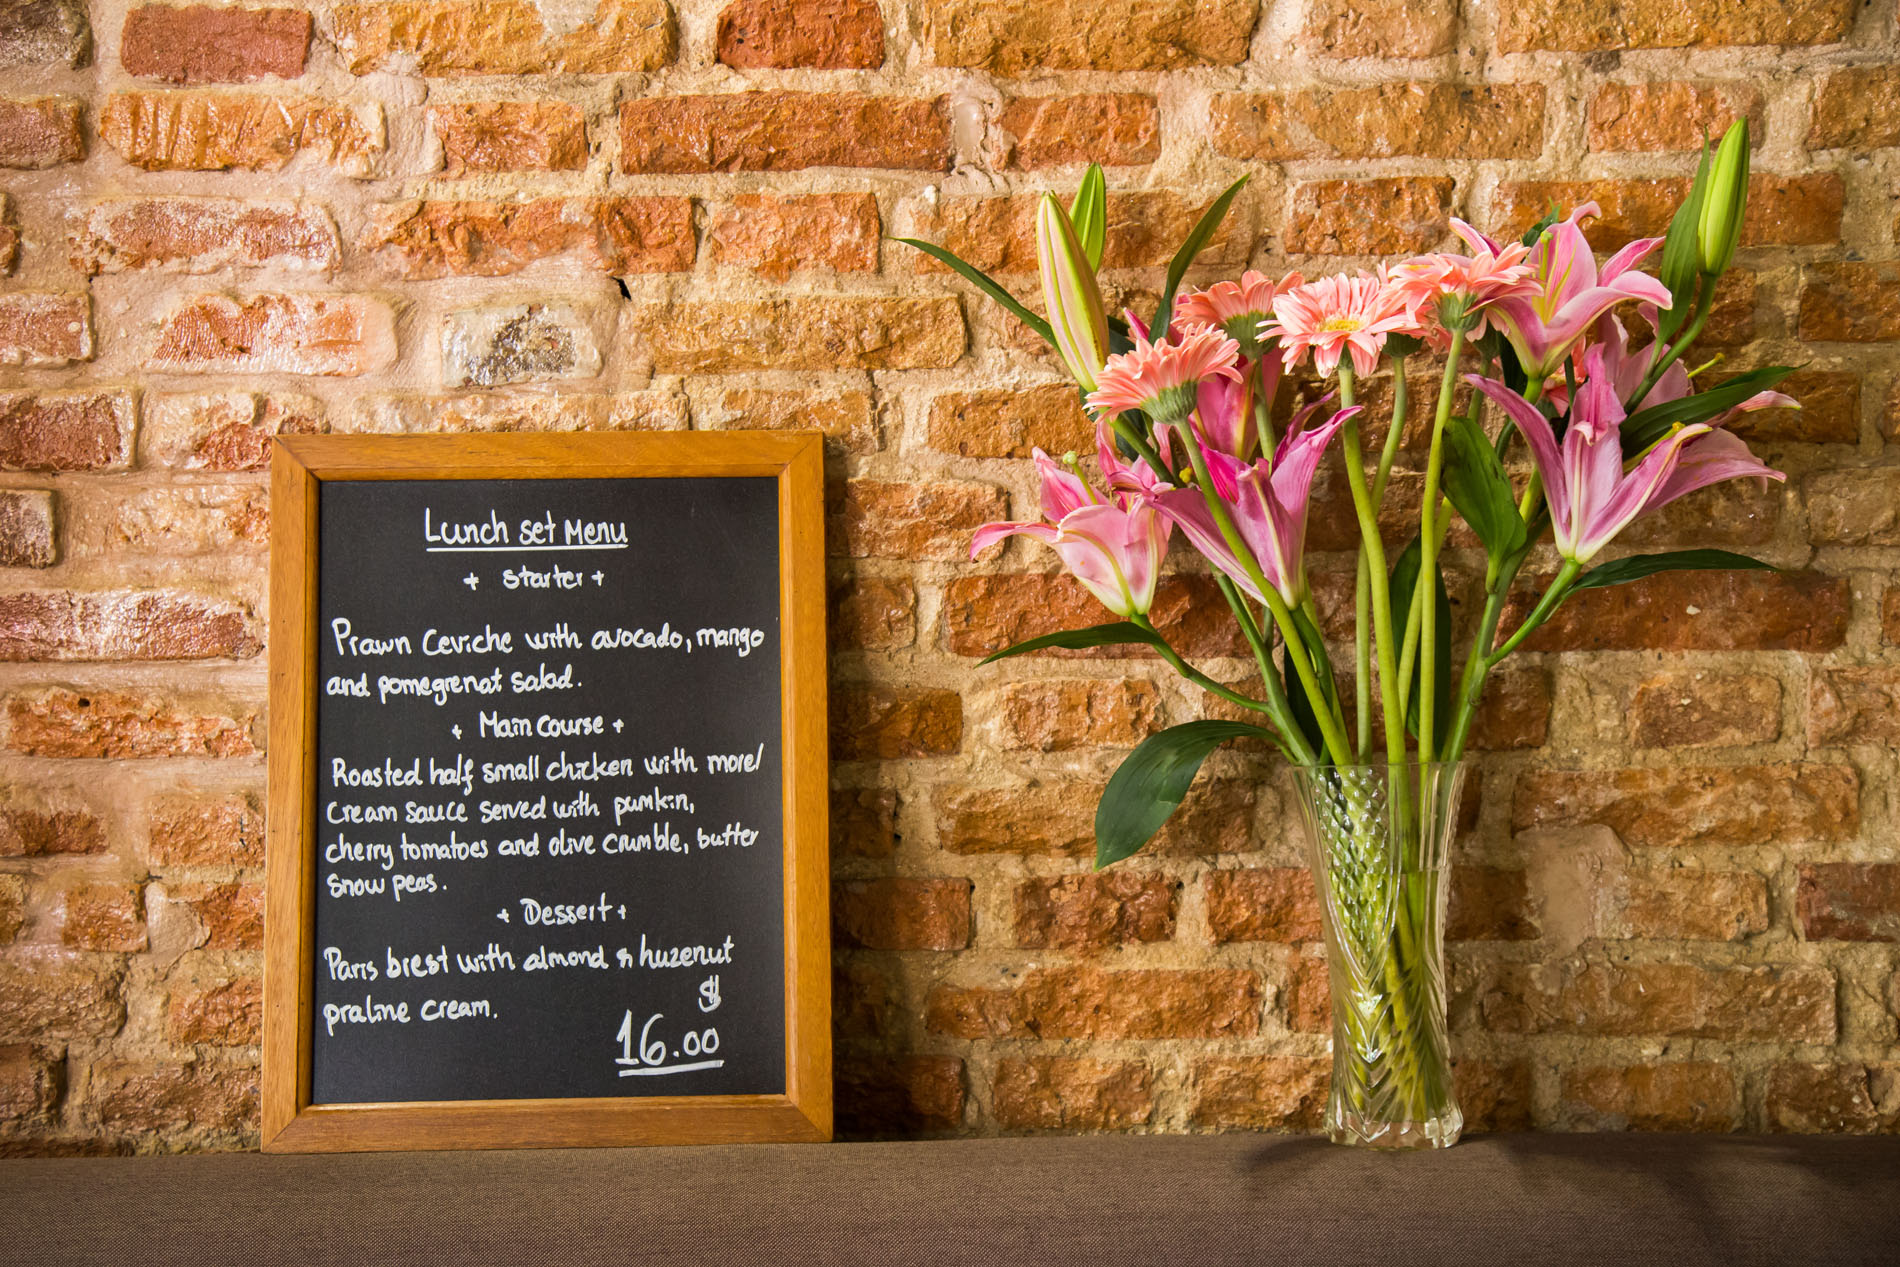 Lunch set Menu
+ starter +
Prawn Ceviche with avocado, mango
and pomegrenat salad.
+ Main course +
Roasted half small chicken with morel
cream sauce served with pumkin,
cherry tomatoes and olive crumble, butter
snow peas.
+ Dessert +
Paris brest with almond & huzenut
praline cream.
$
16.00